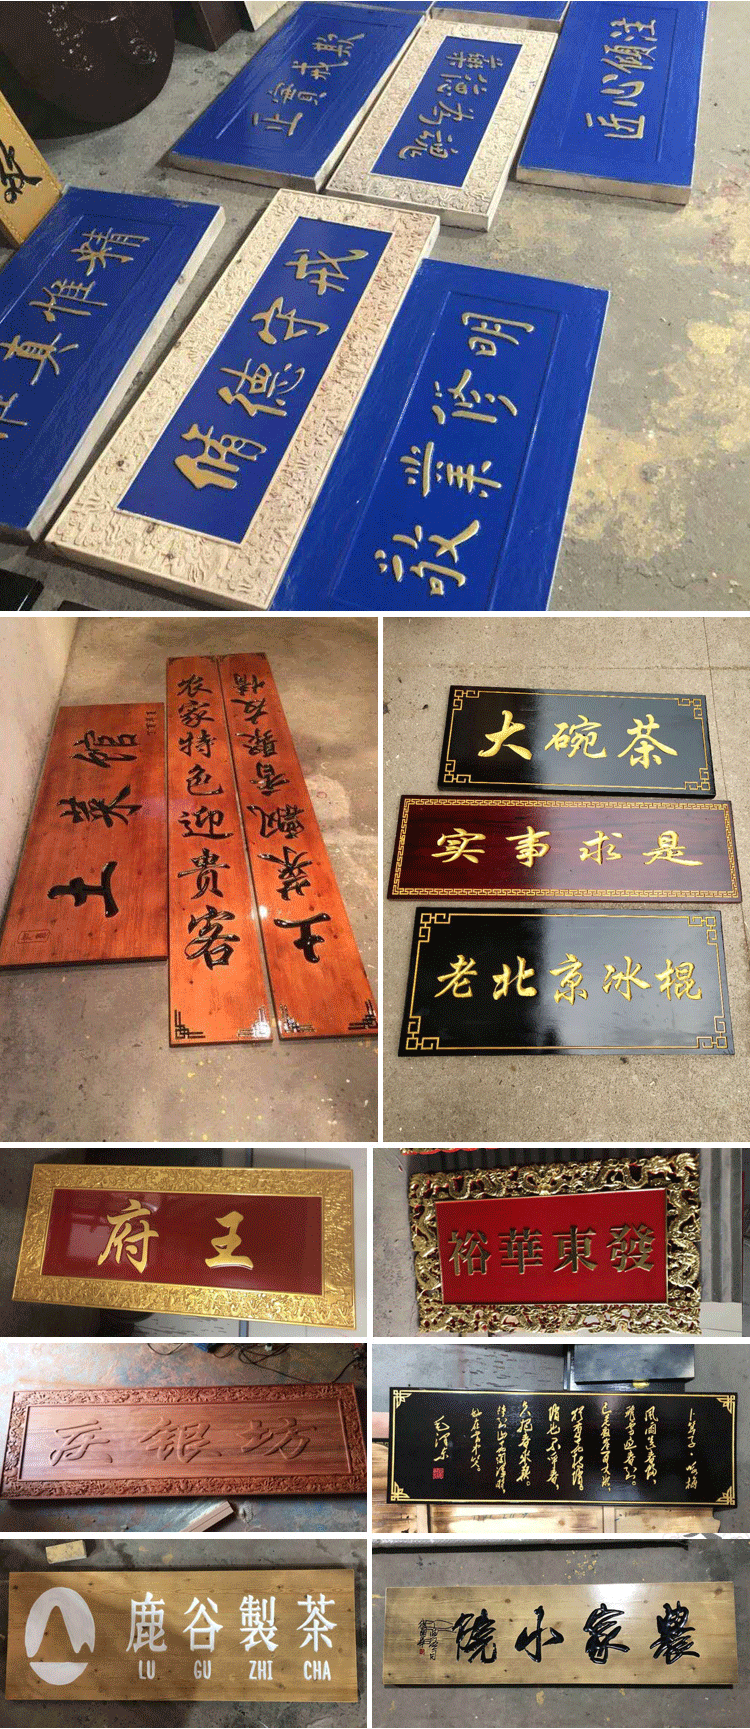 正寳戒欺
匠心傾注
真惟精
脩德守戒
敬業修明
土菜馆
农家特色迎贵客
土菜飘香聚友情
大碗茶
实事求是
老北京冰棍
王府
發東華裕
庆银坊
卜算子·咏梅
风雨送春归，
飞雪迎春到。
已是悬崖百丈冰，
犹有花枝俏。
俏也不争春，
只把春来报。
待到山花烂漫时，
她在丛中笑。
毛泽东
鹿谷製茶
LU GU ZHI CHA
農家小燒